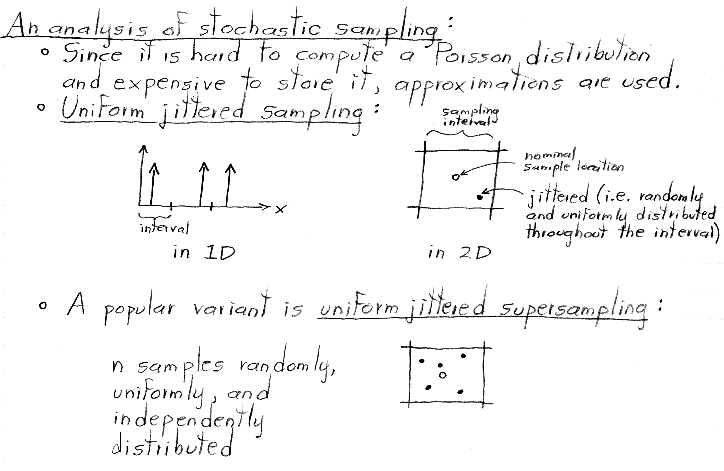 An analysis of stochastic sampling:
o Since it is hard to compute a Poisson distribution
and expensive to store it, approximations are used.
o Uniform jittered sampling:
sampling
interval
nominal
sample location
jittered (i.e. randomly
and uniformly distributed
throughout the interval)
x
interval
in 1D
in 2D
o A popular variant is uniform jittered supersampling:
n samples randomly,
uniformly, and
independently
distributed